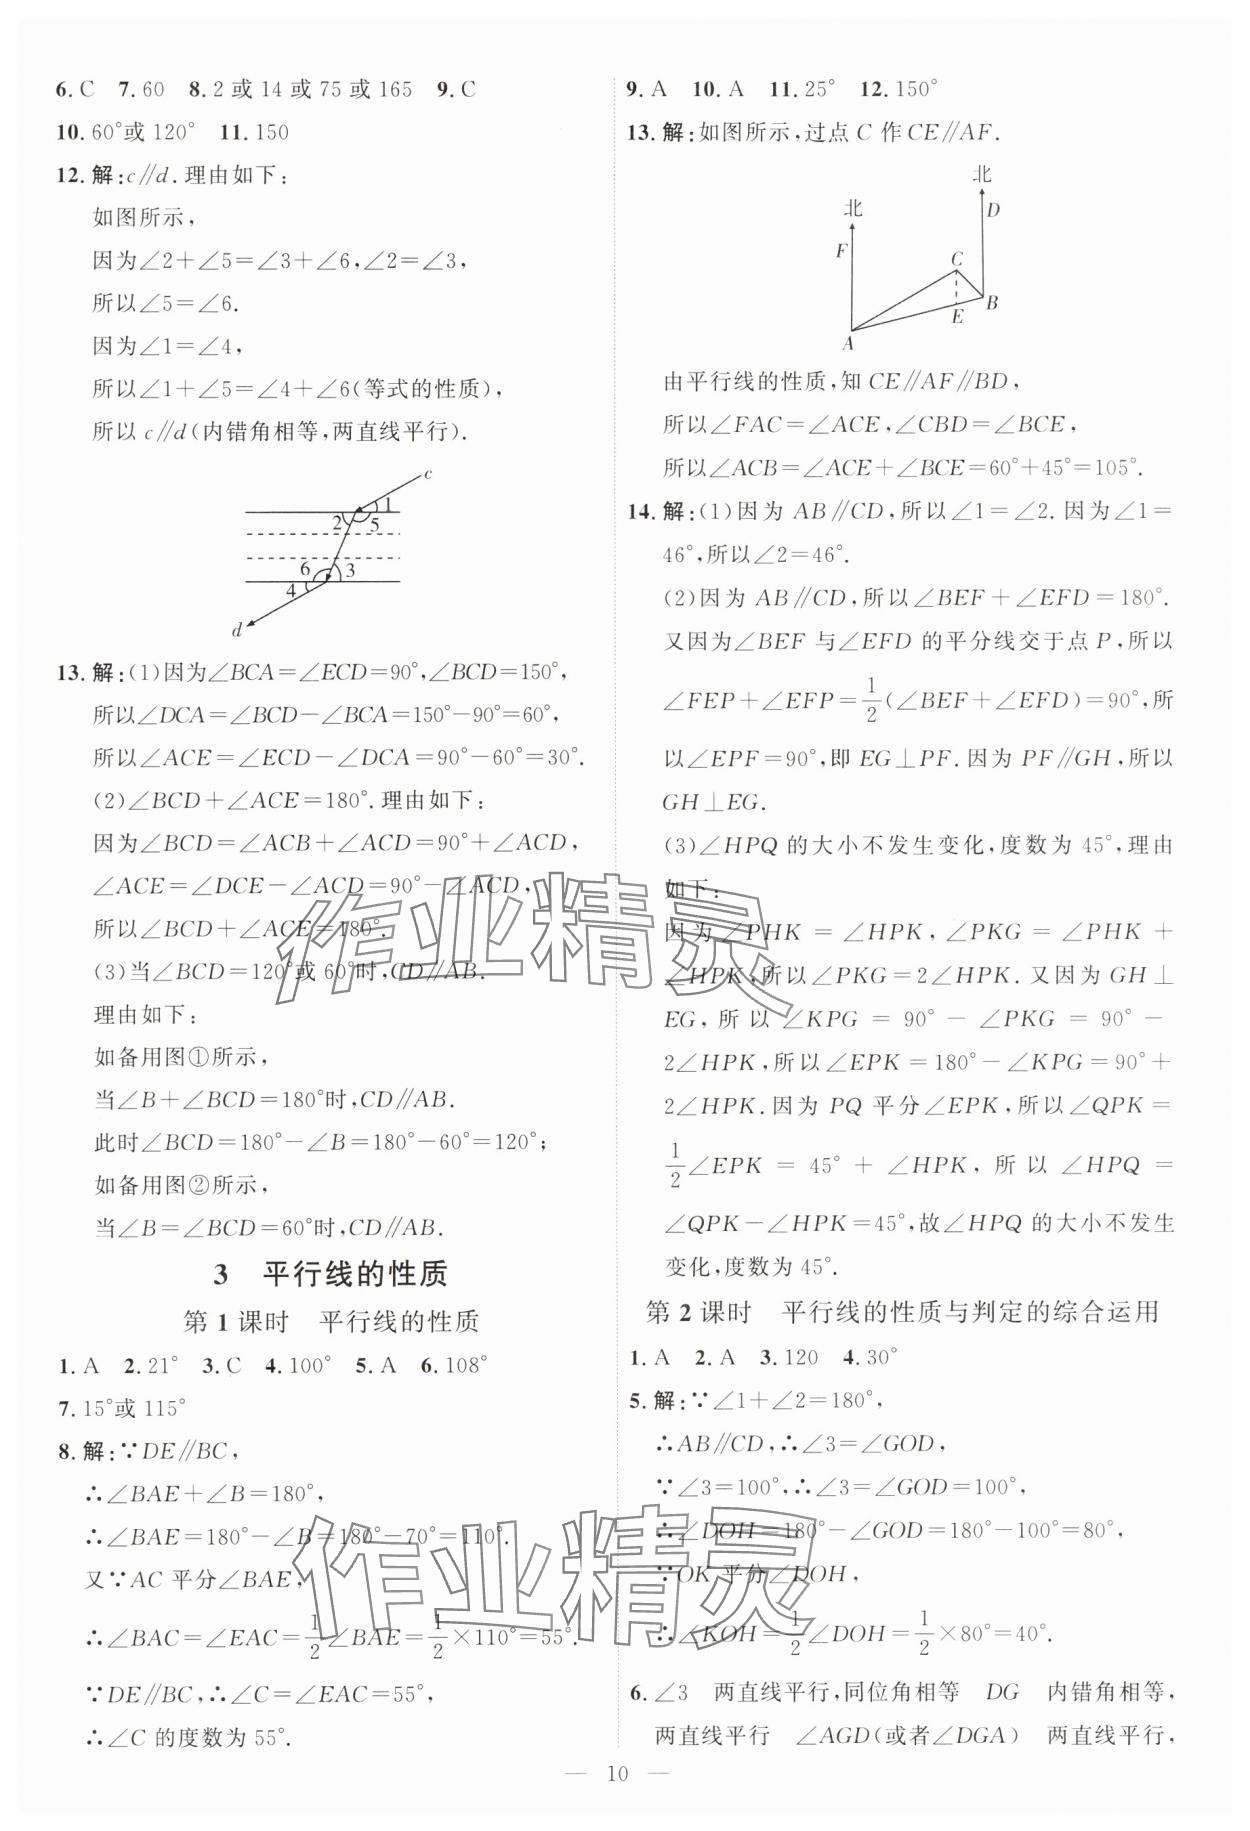 6. C　7. 60　8. 2 或 14 或 75 或 165　9. C
10. 60°或 120°　11. 150
12. 解:c∥d. 理由如下:
如图所示,
因为∠2+∠5=∠3+∠6,∠2=∠3,
所以∠5=∠6.
因为∠1=∠4,
所以∠1+∠5=∠4+∠6(等式的性质),
所以 c∥d(内错角相等,两直线平行).
c
1
2
5
6
3
4
d
13. 解:(1)因为∠BCA=∠ECD=90°,∠BCD=150°,
所以∠DCA=∠BCD-∠BCA=150°-90°=60°,
所以∠ACE=∠ECD-∠DCA=90°-60°=30°.
(2)∠BCD+∠ACE=180°. 理由如下:
因为∠BCD=∠ACB+∠ACD=90°+∠ACD,
∠ACE=∠DCE-∠ACD=90°-∠ACD,
所以∠BCD+∠ACE=180°.
(3)当∠BCD=120°或 60°时,CD∥AB.
理由如下:
如备用图①所示,
当∠B+∠BCD=180°时,CD∥AB.
此时∠BCD=180°-∠B=180°-60°=120°;
如备用图②所示,
当∠B=∠BCD=60°时,CD∥AB.
3　平行线的性质
第 1 课时　平行线的性质
1. A　2. 21°　3. C　4. 100°　5. A　6. 108°
7. 15°或 115°
8. 解:∵DE∥BC,
∴∠BAE+∠B=180°,
∴∠BAE=180°-∠B=180°-70°=110°.
又∵AC 平分∠BAE,
∴∠BAC=∠EAC=1/2∠BAE=1/2×110°=55°.
∵DE∥BC,∴∠C=∠EAC=55°,
∴∠C 的度数为 55°.
9. A　10. A　11. 25°　12. 150°
13. 解:如图所示,过点 C 作 CE∥AF.
北
D
北
F
C
B
E
A
由平行线的性质,知 CE∥AF∥BD,
所以∠FAC=∠ACE,∠CBD=∠BCE,
所以∠ACB=∠ACE+∠BCE=60°+45°=105°.
14. 解:(1)因为 AB∥CD,所以∠1=∠2. 因为∠1=
46°,所以∠2=46°.
(2)因为 AB∥CD,所以∠BEF+∠EFD=180°.
又因为∠BEF 与∠EFD 的平分线交于点 P,所以
∠FEP+∠EFP=1/2(∠BEF+∠EFD)=90°,所
以∠EPF=90°,即 EG⊥PF. 因为 PF∥GH,所以
GH⊥EG.
(3)∠HPQ 的大小不发生变化,度数为 45°,理由
如下:
因为 ∠PHK = ∠HPK, ∠PKG = ∠PHK +
∠HPK,所以∠PKG=2∠HPK. 又因为 GH⊥
EG, 所以 ∠KPG = 90° - ∠PKG = 90° -
2∠HPK,所以∠EPK=180°-∠KPG=90°+
2∠HPK. 因为 PQ 平分∠EPK,所以∠QPK=
1/2∠EPK = 45° + ∠HPK, 所以 ∠HPQ =
∠QPK-∠HPK=45°,故∠HPQ 的大小不发生
变化,度数为 45°.
第 2 课时　平行线的性质与判定的综合运用
1. A　2. A　3. 120　4. 30°
5. 解:∵∠1+∠2=180°,
∴AB∥CD,∴∠3=∠GOD,
∵∠3=100°,∴∠3=∠GOD=100°,
∴∠DOH=180°-∠GOD=180°-100°=80°,
∵OK 平分∠DOH,
∴∠KOH=1/2∠DOH=1/2×80°=40°.
6. ∠3　两直线平行,同位角相等　DG　内错角相等,
两直线平行　∠AGD(或者∠DGA)　两直线平行,
— 10 —
作业精灵
作业精灵